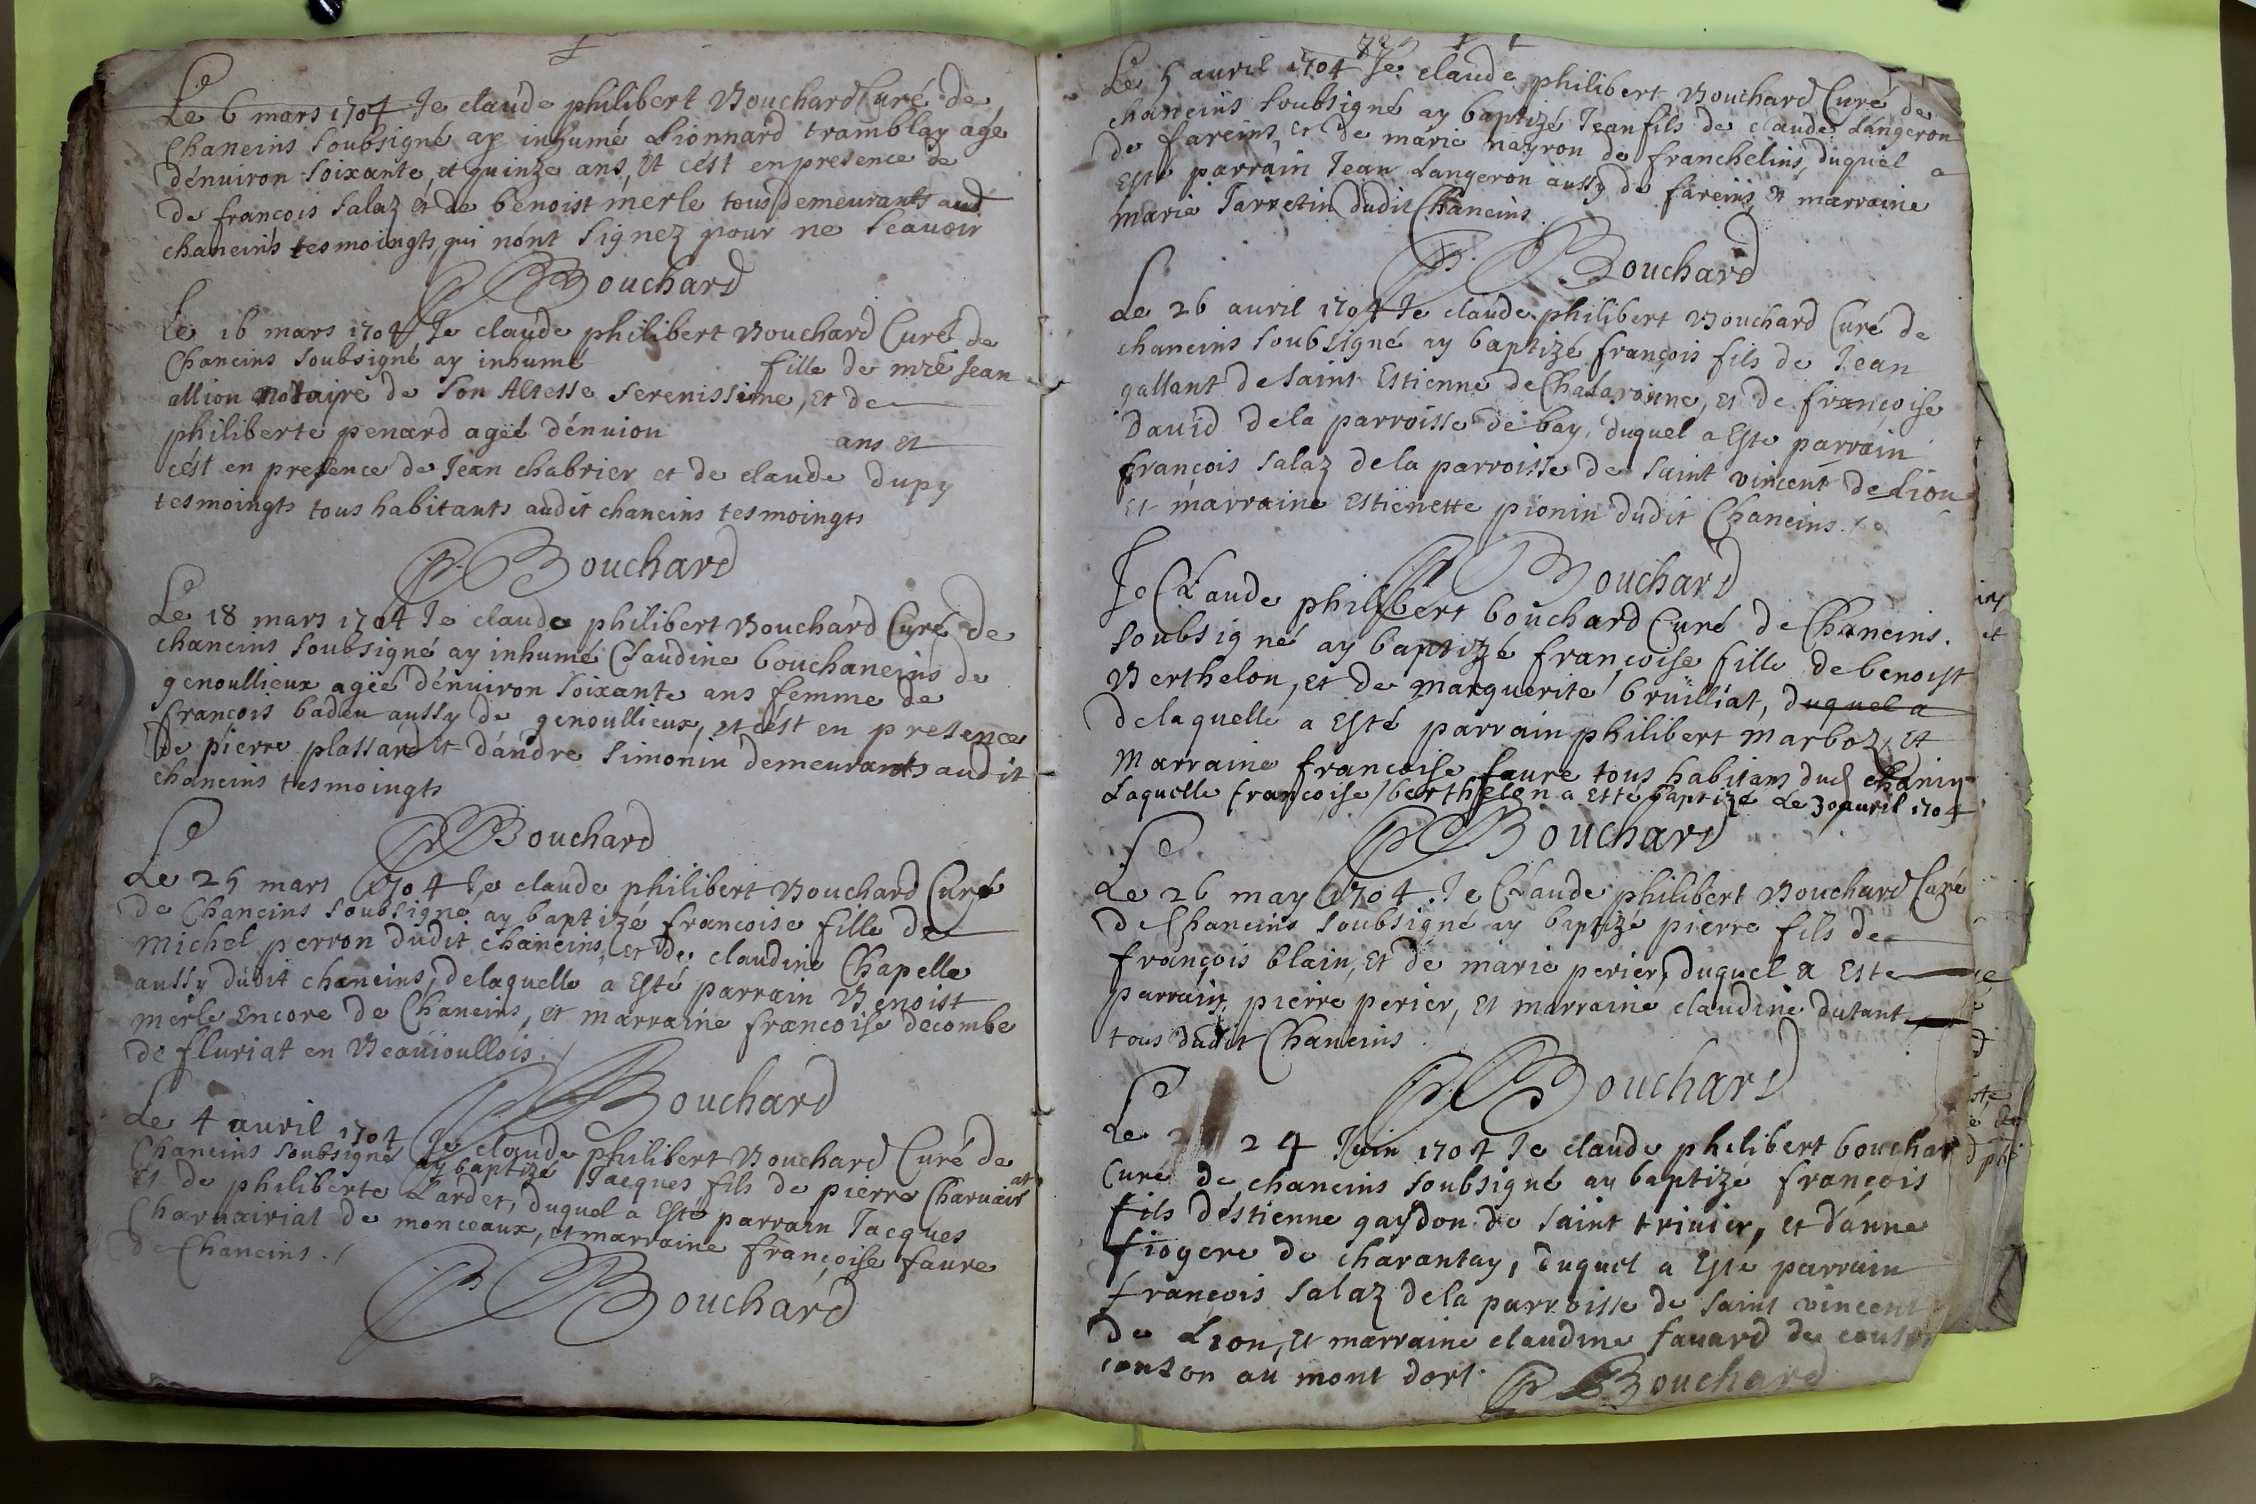 Le 6 mars 1704 Je claude philibert Bouchard Curé de
Chaneins soubsigné ay inhumé Lionnard tramblay agé
dénuiron soixante, et quinze ans, Et cést en presence de
de francois salaz et de benoist merle tous demeurants aud
chaneins tesmoingts, qui nónt signez pour ne scauoir
Bouchard
Le 16 mars 1704 Je claude philibert Bouchard Curé de
Chaneins soubsigné ay inhumé fille de mre Jean
allion notaire de son Altesse serenissime, Et de
philiberte penard ageé dénuion ans et
cést en presence de Jean chabrier et de claude dupy
tesmoingts tous habitants audit chaneins tesmoingts
Bouchard
Le 18 mars 1704 Je claude philibert Bouchard Curé de
chaneins soubsigné ay inhumé Claudine bouchaneins de
genoullieux ageé dénuiron soixante ans femme de
francois badeu aussy de genoullieux, et cést en presence
de pierre plassard et dándre simónin demeurants audit
chaneins tesmoingts
Bouchard
Le 25 mars 1704 Je claude philibert Bouchard Curé
de Chaneins soubsigné ay baptizé francoise fille de
michel perron dudit chaneins, et de claudine Chapelle
aussy dudit chaneins, delaquelle a Esté parrain Benoist
merle Encore de Chaneins, et marraine francoise decombe
de fluriat en Beauioullois
Bouchard
Le 4 auril 1704 Je claude philibert Bouchard Curé de
Chaneins soubsigné ay baptizé Jacques fils de pierre Charuair at
Et de philiberte Lardet, duquel a Esté parrain Jacques
Charuairiat de monceaux, et marraine françoise faure
de Chaneins.
Bouchard
Le 5 auril 1704 Je claude philibert Bouchard Curé de
chaneins soubsigné ay baptizé Jean fils de claude Langeron
de fareins, et de marie nayron de franchelins, duquel a
Este parrain Jean Langeron aussy de fareins, et marraine
marie Jarretin dudit Chaneins.
Bouchard
Le 26 auril 1704 Je claude philibert Bouchard Curé de
chaneins soubsigné ay baptizé françois fils de Jean
gallant de saint Estienne de Chalaronne, et de françoise
Dauid dela parroisse de bay, duquel a Este parrain
françois salaz dela parroisse de saint vincent de Lion
Et marraine Estienette pionin dudit Chaneins.
Bouchard
Je Claude philibert bouchard Curé de Chaneins.
soubsigné ay baptizé françoise fille de benoist
Berthelon, et de marguerite bruilliat, duquel a
delaquelle a Esté parrain philibert marboz, Et
marraine françoise faure tous habitans dud chanin
Laquelle francoise berthelon a esté baptizé Le 30 auril 1704
Bouchard
Le 26 may 1704 Je Claude philibert Bouchard Curé
de Chaneins soubsigné ay baptizé pierre fils de
françois blain, Et de marie perier, duquel a Este
parrain, pierre perier, Et marraine claudine dutant
tous dudit Chaneins
Bouchard
Le 24 Juin 1704 Je claude philibert bouchar
Curé de chaneins soubsigné ay baptizé françois
fils déstienne gaydon de saint triuier, et dánne
fiogere de charantay, duquel a Esté parrain
françois salaz dela parroisse de saint vincent
de Lion, Et marraine claudine fauard de couson
couson au mont dort.
Bouchard